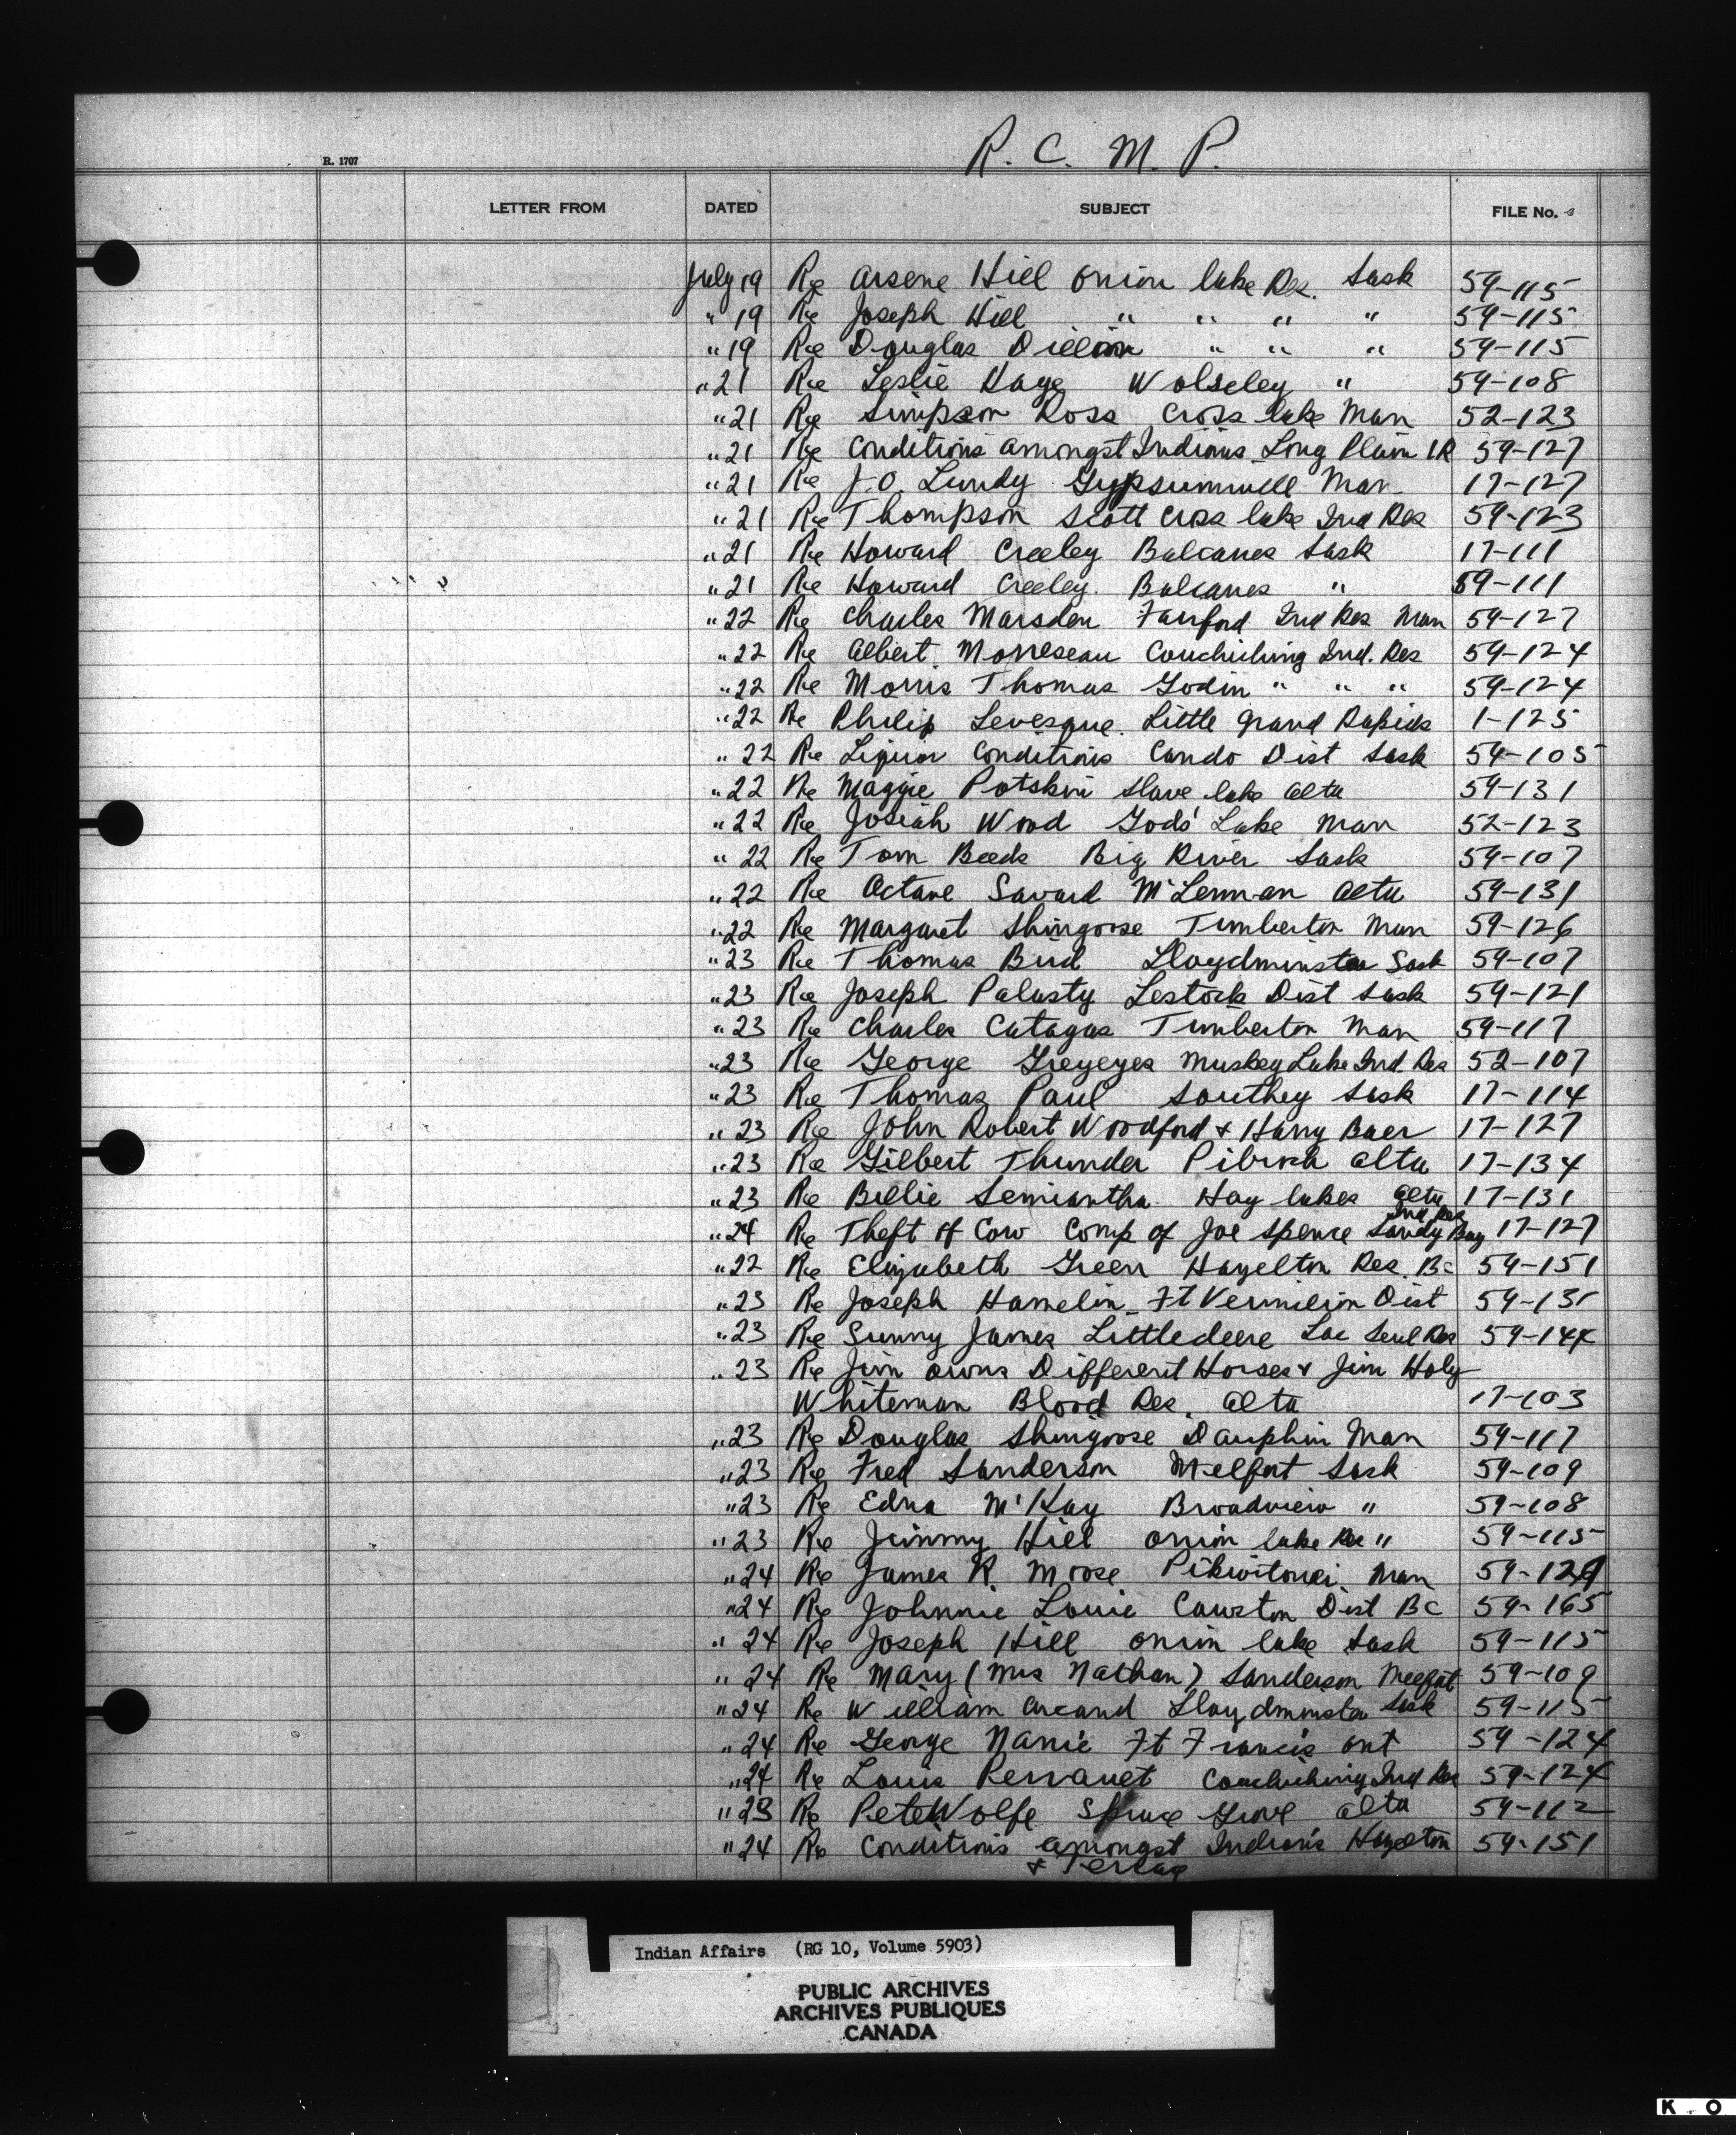 R. C. M. P.
R. 1707
LETTER FROM DATED SUBJECT FILE No.
July 19 Re Arsene Hill Onion lake Res. Sask 59-115
" 19 Re Joseph Hill " " " " 59-115
" 19 Re Douglas Dillon " " " 59-115
" 21 Re Leslie Kaye Wolseley " 59-108
" 21 Re Simpson Ross Cross lake Man 52-123
" 21 Re Conditions amongst Indians Long Plain IR 59-127
" 21 Re J.O. Lundy Gypsumville Man 17-127
" 21 Re Thompson Scott Cross lake Ind Res 59-123
" 21 Re Howard Creeley Balcarres Sask 17-111
" 21 Re Howard Creeley. Balcarres " 59-111
" 22 Re Charles Marsden Fairford Ind Res Man 59-127
" 22 Re Albert Morreseau Couchiching Ind. Res 59-124
" 22 Re Morris Thomas Godin " " " 59-124
" 22 Re Philip Levesque. Little Grand Rapids 1-125
" 22 Re Liquor Conditions Cando Dist Sask 59-105
" 22 Re Maggie Potskin Slave lake Alta 59-131
" 22 Re Josiah Wood Gods' Lake Man 52-123
" 22 Re Tom Beeds Big River Sask 59-107
" 22 Re Octave Savard McLennan Alta 59-131
" 22 Re Margaret Shingoose Timberton Man 59-126
" 23 Re Thomas Bird Lloydminster Sask 59-107
" 23 Re Joseph Palusty Lestock Dist Sask 59-121
" 23 Re Charles Catagas Timberton Man 59-117
" 23 Re George Greyeyes Muskey Lake Ind. Res 52-107
" 23 Re Thomas Paul Southey Sask 17-114
" 23 Re John Robert Woodford & Harry Baer 17-127
" 23 Re Gilbert Thunder Pibroch Alta 17-134
" 23 Re Billie Semiantha Hay lakes Alta 17-131
" 24 Re Theft of Cow Comp of Joe Spence Sandy Bay Ind Res 17-127
" 22 Re Elizabeth Green Hazelton Res. BC 59-151
" 23 Re Joseph Hamelin Ft Vermilion Dist 59-131
" 23 Re Sunny James Littledeere Lac Seul Res 59-144
" 23 Re Jim owns Different Horses & Jim Holy
Whiteman Blood Res. Alta 17-103
" 23 Re Douglas Shingoose Dauphin Man 59-117
" 23 Re Fred Sanderson Melfort Sask 59-109
" 23 Re Edna McKay Broadview " 59-108
" 23 Re Jimmy Hill Onion lake Res " 59-115
" 24 Re James R. Moose Pikwitonei Man 59-129
" 24 Re Johnnie Louie Cawston Dist BC 59-165
" 24 Re Joseph Hill Onion lake Sask 59-115
" 24 Re Mary (Mrs Nathan) Sanderson Melfort 59-109
" 24 Re William Arcand Lloydminster Sask 59-115
" 24 Re George Namie Ft Francis Ont 59-124
" 24 Re Louis Perrault Couchiching Ind Res 59-124
" 23 Re Pete Wolfe Spruce Grove Alta 59-112
" 24 Re Conditions amongst Indians Hazelton 59-151
&
Indian Affairs (RG 10, Volume 5903)
PUBLIC ARCHIVES
ARCHIVES PUBLIQUES
CANADA
K O